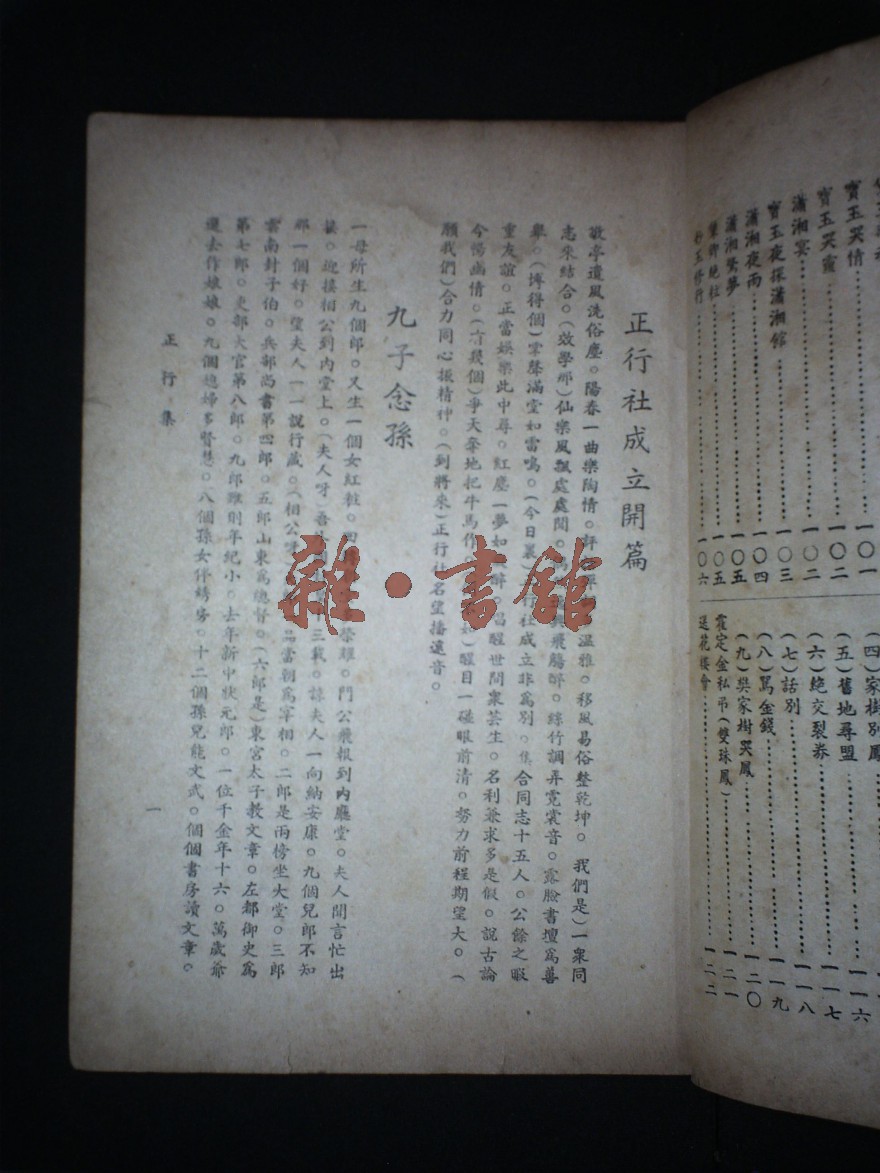 寶玉哭情⋯⋯一〇一
寶玉哭靈⋯⋯一〇二
瀟湘宴⋯⋯一〇二
寶玉夜探瀟湘館⋯⋯一〇三
瀟湘夜雨⋯⋯一〇四
瀟湘驚夢⋯⋯一〇五
一〇五
一〇六
(四)家樹別鳳
一一六
(五)舊地尋盟⋯⋯一一七
(六)絶交裂券⋯⋯一一八
(七)話別⋯⋯一一九
(八)罵金錢⋯⋯一二〇
(九)樊家樹哭鳳⋯⋯一二一
霍定金私吊(雙珠鳳)⋯⋯一二一
送花樓會⋯⋯一二二
正行社成立開篇
敬亭遺風洗俗塵。陽春一曲樂陶情。評 溫雅。移風易俗整乾坤。 我們是)一衆同
志來結合。(效學那)仙樂風飄處處聞。 興飛觴醉。絲竹調弄霓裳音。露臉書壇爲善
舉。(博得個)掌聲滿堂如雷鳴。(今日裏) 行社成立非爲別。集合同志十五人。公餘之暇
重友誼。正當娛樂此中尋。紅塵一夢如 醉。唱醒世間衆芸生。名利兼求多是假。說古論
今暢幽情。(有幾個)爭天奪地把牛馬作。 如)醒目一碰眼前清。努力前程期望大。(
願我們)合力同心振精神。(到將來)正行社名望播遠音。
九子念孫
一母所生九個郎。又生一個女紅粧。 榮耀。門公飛報到內廳堂。夫人聞言忙出
接。迎接相公到內堂上。(夫人呀) 三載。諒夫人一向納安康。九個兒郎不知
那一個好。望夫人一一說行藏。(相公呀) 品當朝爲宰相。二郎是兩榜坐大堂。三郎
雲南封子伯。兵部尚書第四郎。五郎山東爲總督。(六郎是)東宮太子教文章。左都御史爲
第七郎。吏部大官第八郎。九郎雖則年紀小。去年新中狀元郎。一位千金年十六。萬歲爺
選去作娘娘。九個媳婦多賢慧。八個孫女伴綉房。十二個孫兒能文武。個個書房讀文章。
正行集
一
雜·書館